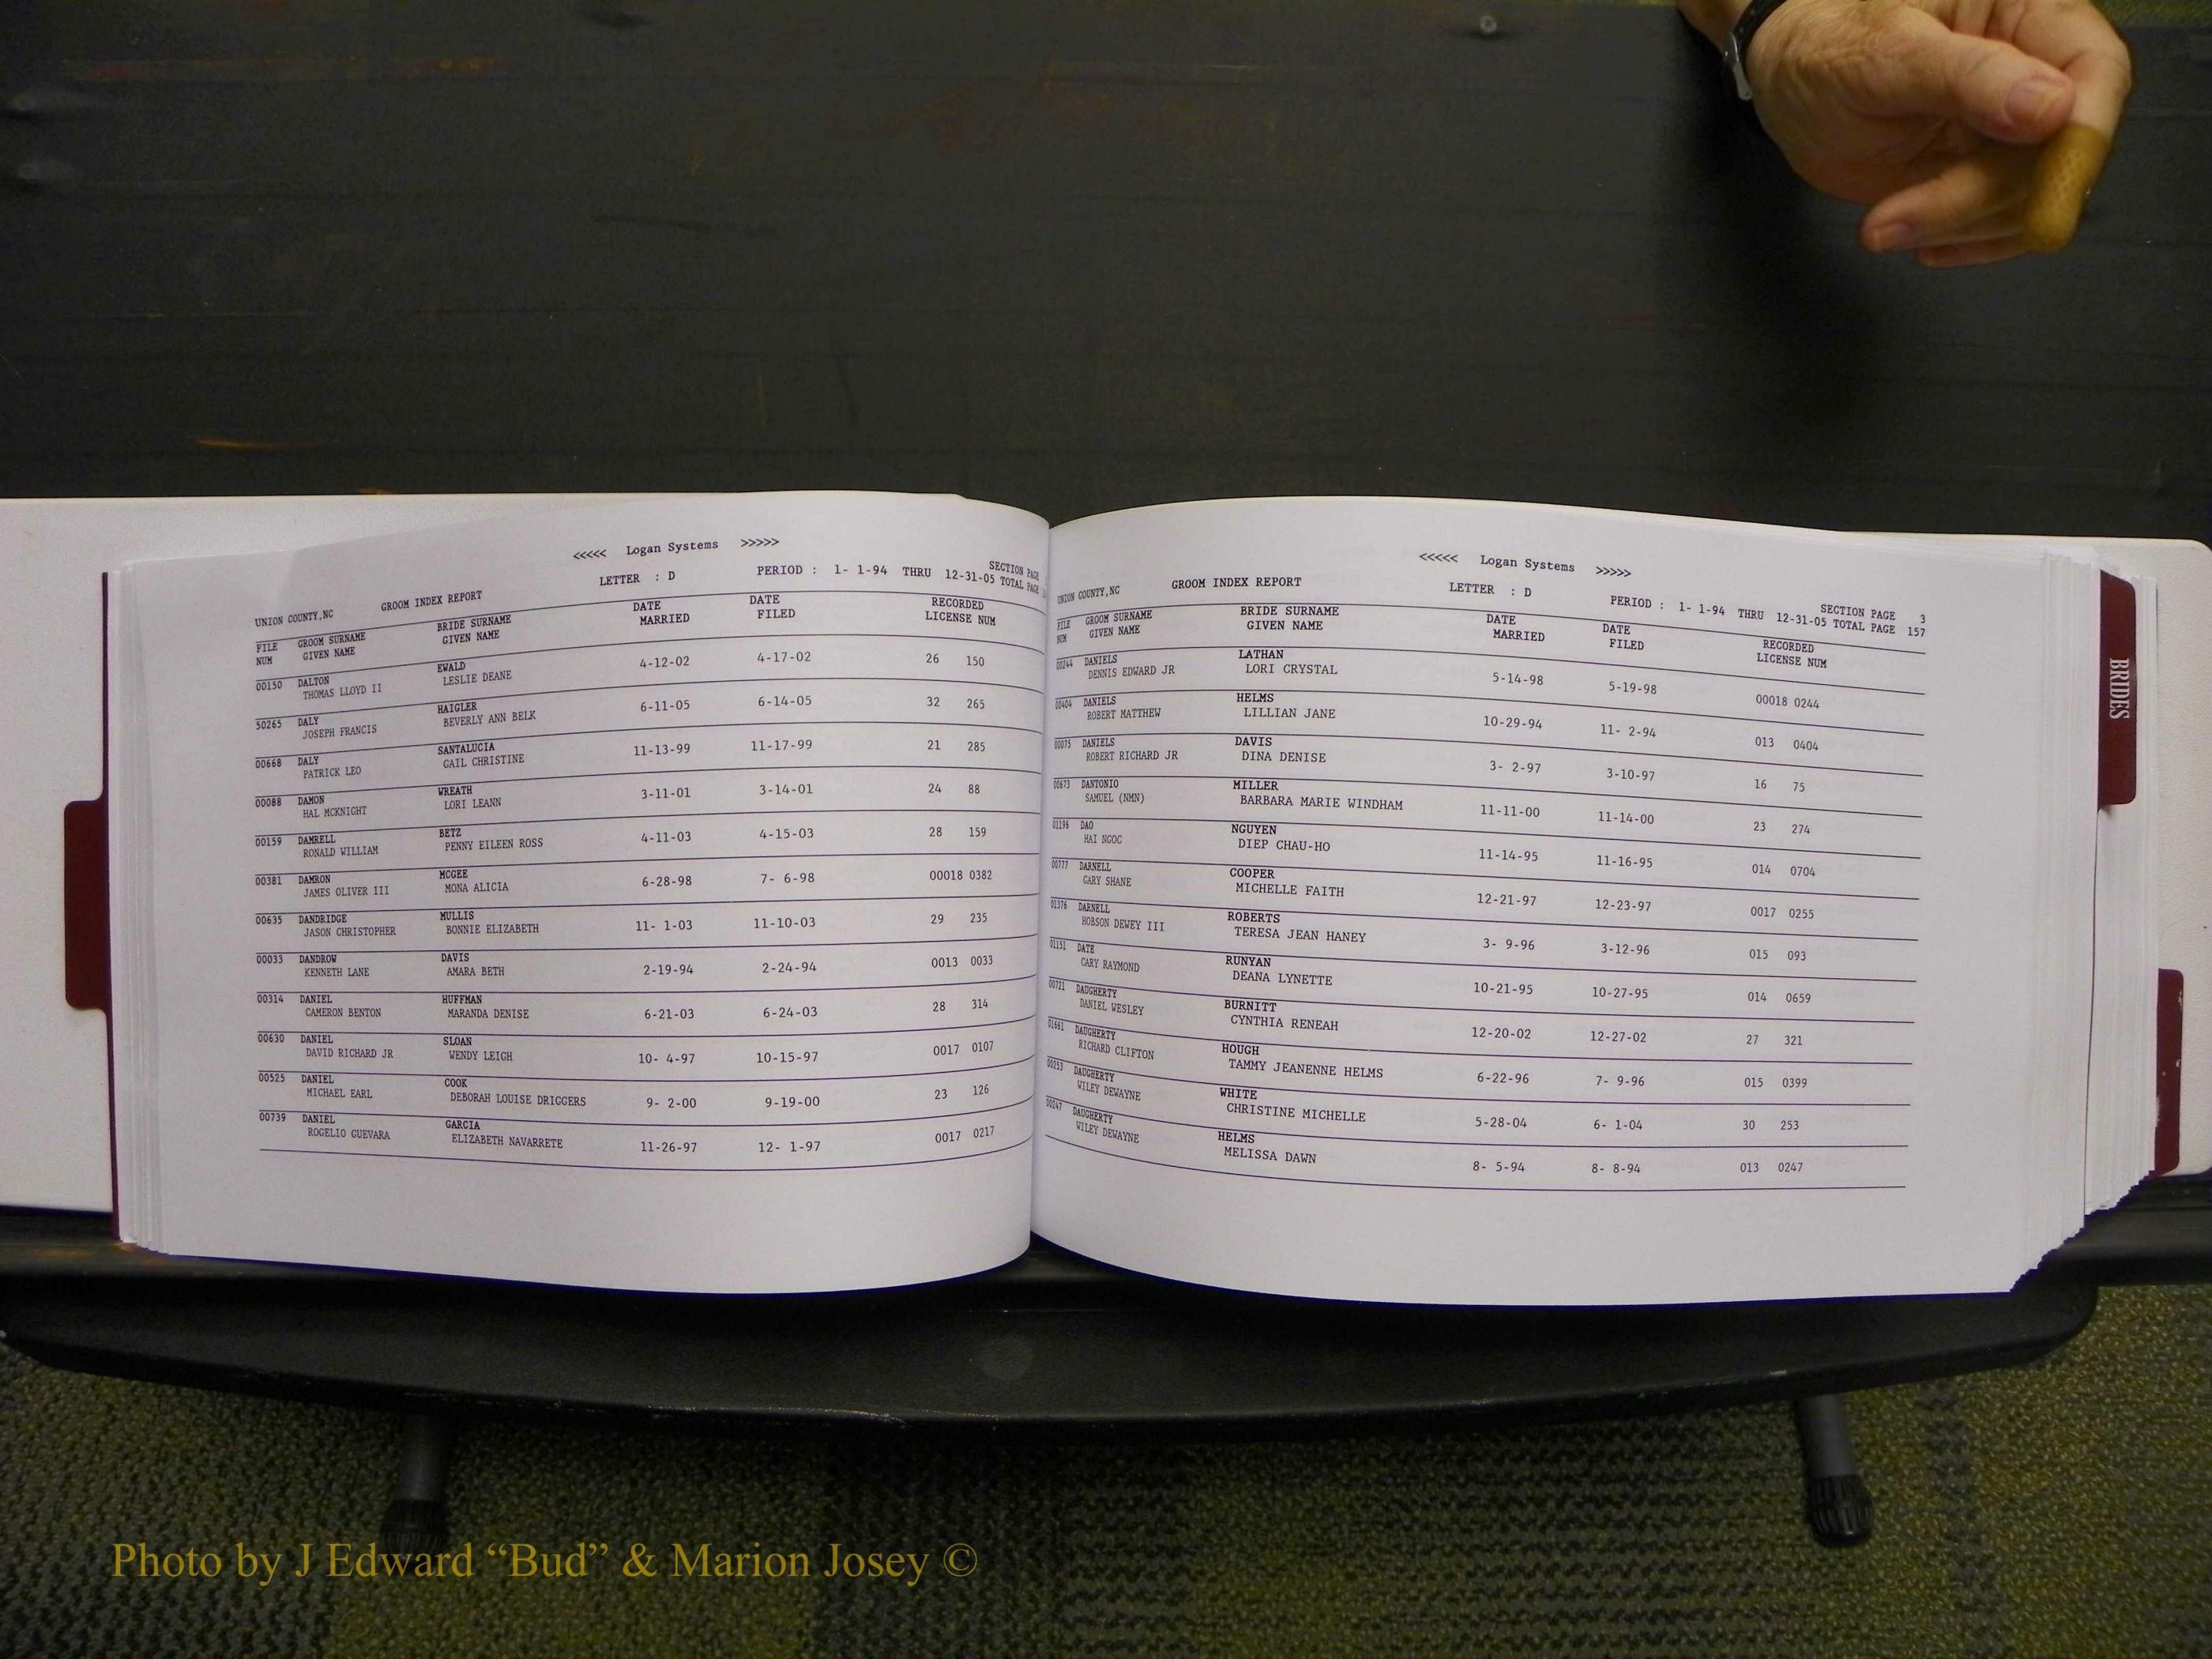 <<<<< Logan Systems >>>>>
UNION COUNTY,NC GROOM INDEX REPORT LETTER : D PERIOD : 1- 1-94 THRU 12-31-05 SECTION PAGE
TOTAL PAGE
FILE GROOM SURNAME BRIDE SURNAME DATE DATE RECORDED
NUM GIVEN NAME GIVEN NAME MARRIED FILED LICENSE NUM
00150 DALTON EWALD 4-12-02 4-17-02 26 150
THOMAS LLOYD II LESLIE DEANE
50265 DALY HAIGLER 6-11-05 6-14-05 32 265
JOSEPH FRANCIS BEVERLY ANN BELK
00668 DALY SANTALUCIA 11-13-99 11-17-99 21 285
PATRICK LEO GAIL CHRISTINE
00088 DAMON WREATH 3-11-01 3-14-01 24 88
HAL MCKNIGHT LORI LEANN
00159 DAMRELL BETZ 4-11-03 4-15-03 28 159
RONALD WILLIAM PENNY EILEEN ROSS
00381 DAMRON MCGEE 6-28-98 7- 6-98 00018 0382
JAMES OLIVER III MONA ALICIA
00635 DANDRIDGE MULLIS 11- 1-03 11-10-03 29 235
JASON CHRISTOPHER BONNIE ELIZABETH
00033 DANDROW DAVIS 2-19-94 2-24-94 0013 0033
KENNETH LANE AMARA BETH
00314 DANIEL HUFFMAN 6-21-03 6-24-03 28 314
CAMERON BENTON MARANDA DENISE
00630 DANIEL SLOAN 10- 4-97 10-15-97 0017 0107
DAVID RICHARD JR WENDY LEIGH
00525 DANIEL COOK 9- 2-00 9-19-00 23 126
MICHAEL EARL DEBORAH LOUISE DRIGGERS
00739 DANIEL GARCIA 11-26-97 12- 1-97 0017 0217
ROGELIO GUEVARA ELIZABETH NAVARRETE
<<<<< Logan Systems >>>>>
UNION COUNTY,NC GROOM INDEX REPORT LETTER : D PERIOD : 1- 1-94 THRU 12-31-05 SECTION PAGE 3
TOTAL PAGE 157
FILE GROOM SURNAME BRIDE SURNAME DATE DATE RECORDED
NUM GIVEN NAME GIVEN NAME MARRIED FILED LICENSE NUM
00244 DANIELS LATHAN 5-14-98 5-19-98 00018 0244
DENNIS EDWARD JR LORI CRYSTAL
00404 DANIELS HELMS 10-29-94 11- 2-94 013 0404
ROBERT MATTHEW LILLIAN JANE
00075 DANIELS DAVIS 3- 2-97 3-10-97 16 75
ROBERT RICHARD JR DINA DENISE
00673 DANTONIO MILLER 11-11-00 11-14-00 23 274
SAMUEL (NMN) BARBARA MARIE WINDHAM
01196 DAO NGUYEN 11-14-95 11-16-95 014 0704
HAI NGOC DIEP CHAU-HO
00777 DARNELL COOPER 12-21-97 12-23-97 0017 0255
GARY SHANE MICHELLE FAITH
01376 DARNELL ROBERTS 3- 9-96 3-12-96 015 093
HOBSON DEWEY III TERESA JEAN HANEY
01151 DATE RUNYAN 10-21-95 10-27-95 014 0659
CARY RAYMOND DEANA LYNETTE
00721 DAUGHERTY BURNITT 12-20-02 12-27-02 27 321
DANIEL WESLEY CYNTHIA RENEAH
01661 DAUGHERTY HOUGH 6-22-96 7- 9-96 015 0399
RICHARD CLIFTON TAMMY JEANENNE HELMS
00253 DAUGHERTY WHITE 5-28-04 6- 1-04 30 253
WILEY DEWAYNE CHRISTINE MICHELLE
00247 DAUGHERTY HELMS 8- 5-94 8- 8-94 013 0247
WILEY DEWAYNE MELISSA DAWN
BRIDES
Photo by J Edward “Bud” & Marion Josey ©